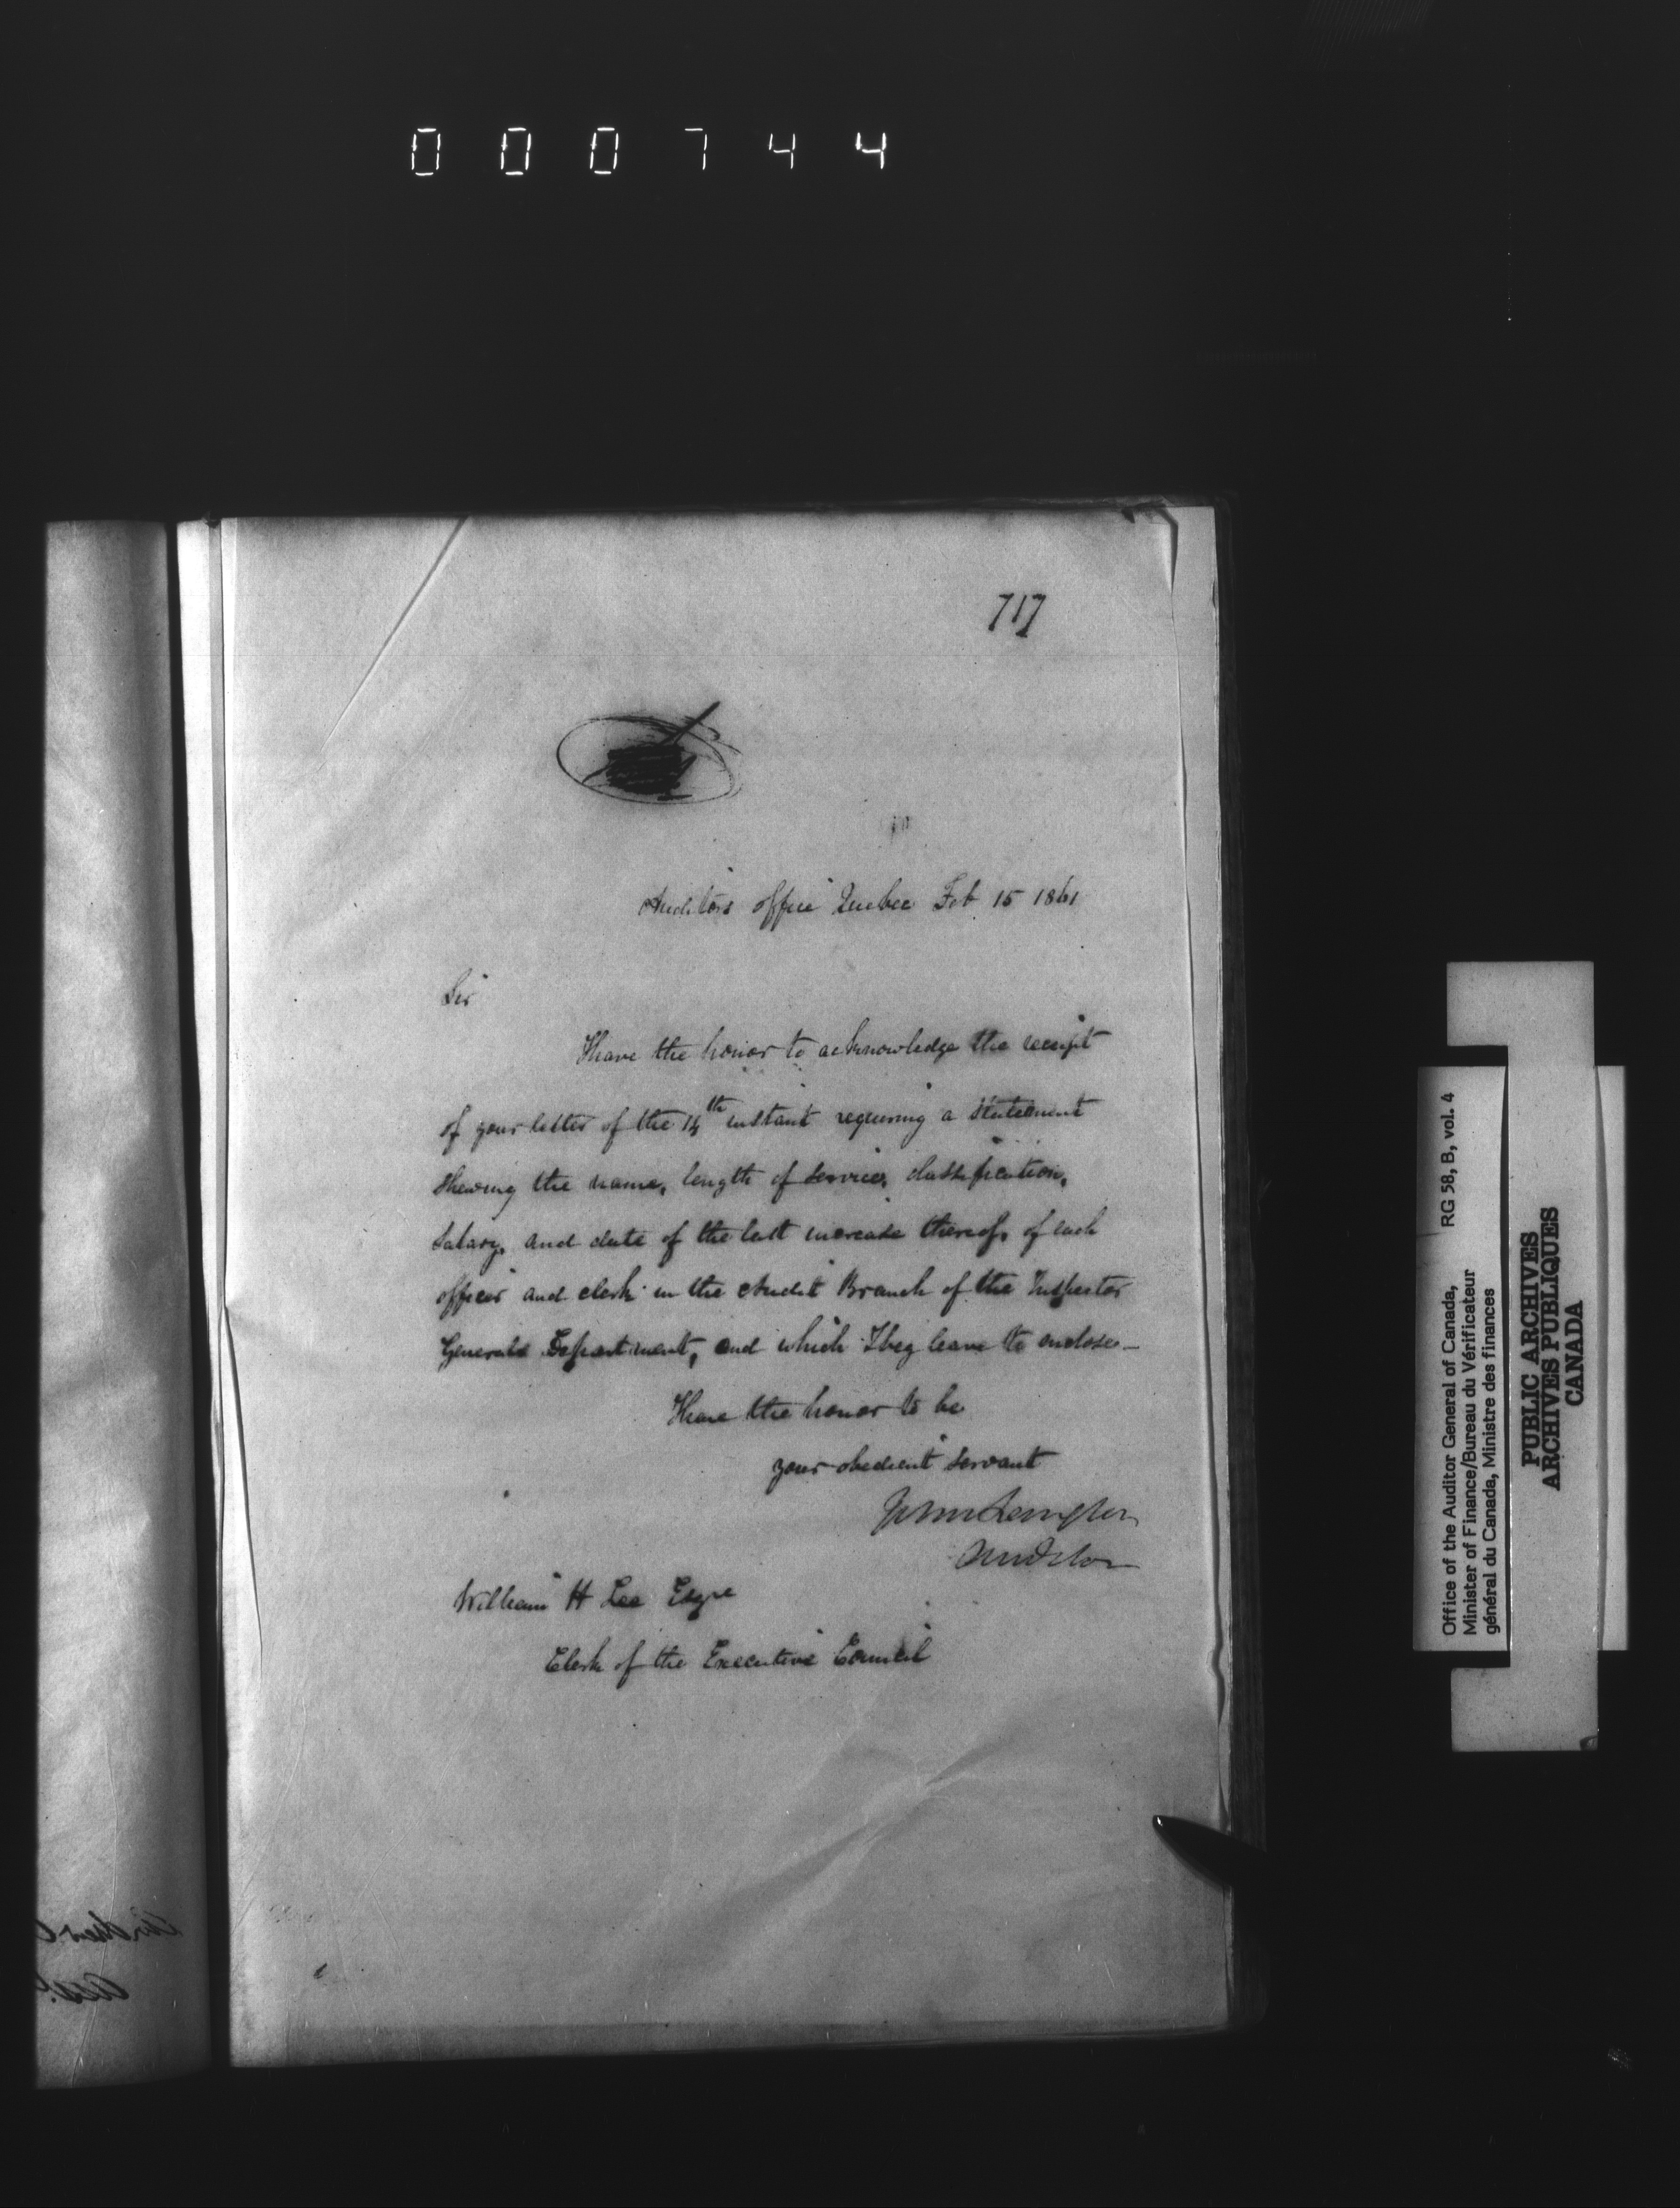 000744
717
Auditors office Quebec Feb 15 1861
Sir
I have the honor to acknowledge the receipt
of your letter of the 14th instant requiring a statement
shewing the name, length of service, classification,
salary, and date of the last increase thereof, of each
officer and clerk in the Audit Branch of the Inspector
Generals Department, and which I beg leave to enclose—
I have the honor to be
your obedient servant
John Langton
Auditor
William H Lee Esqre
Clerk of the Executive Council
Office of the Auditor General of Canada, RG 58, B, vol. 4
Minister of Finance/Bureau du Vérificateur
général du Canada, Ministre des finances
PUBLIC ARCHIVES
ARCHIVES PUBLIQUES
CANADA